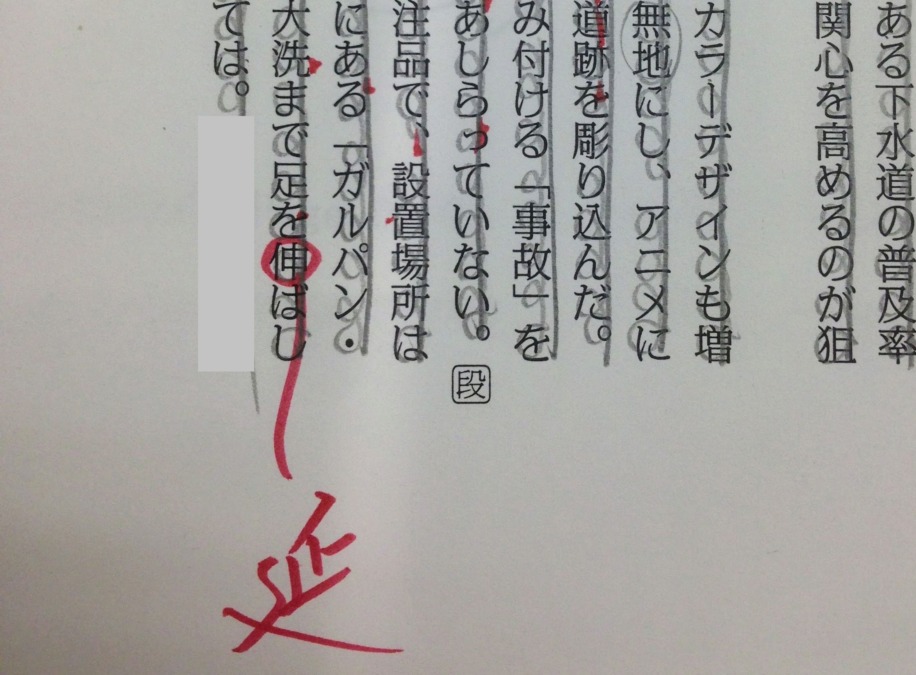 ある下水道の普及率
関心を高めるのが狙
カラーデザインも増
無地にし、アニメに
道跡を彫り込んだ。
み付ける「事故」を
あしらっていない。
段
注品で、設置場所は
にある「ガルパン・
大洗まで足を伸ばし
ては。
延